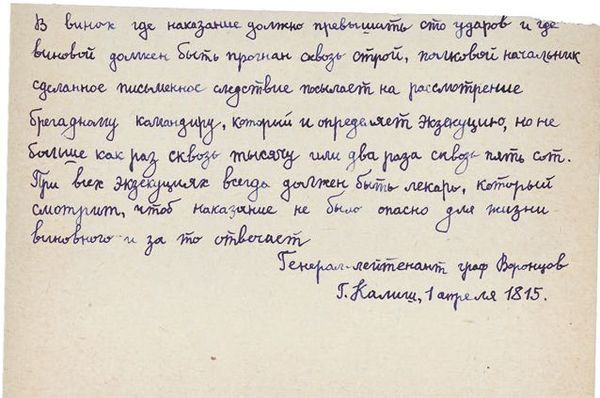 В винах где наказание должно превышать сто ударов и где
виновой должен быть прогнан сквозь строй, полковой начальник
сделанное письменное следствие посылает на рассмотрение
брегадному камандиру, который и определяет экзекуцию, но не
больше как раз сквозь тысячу или два раза сквозь пять сот.
При всех экзекуциях всегда должен быть лекарь, который
смотрит, чтоб наказание не было опасно для жизни
виновного и за то отвечает
Генерал-лейтенант граф Воронцов
Г. Калиш, 1 апреля 1815.